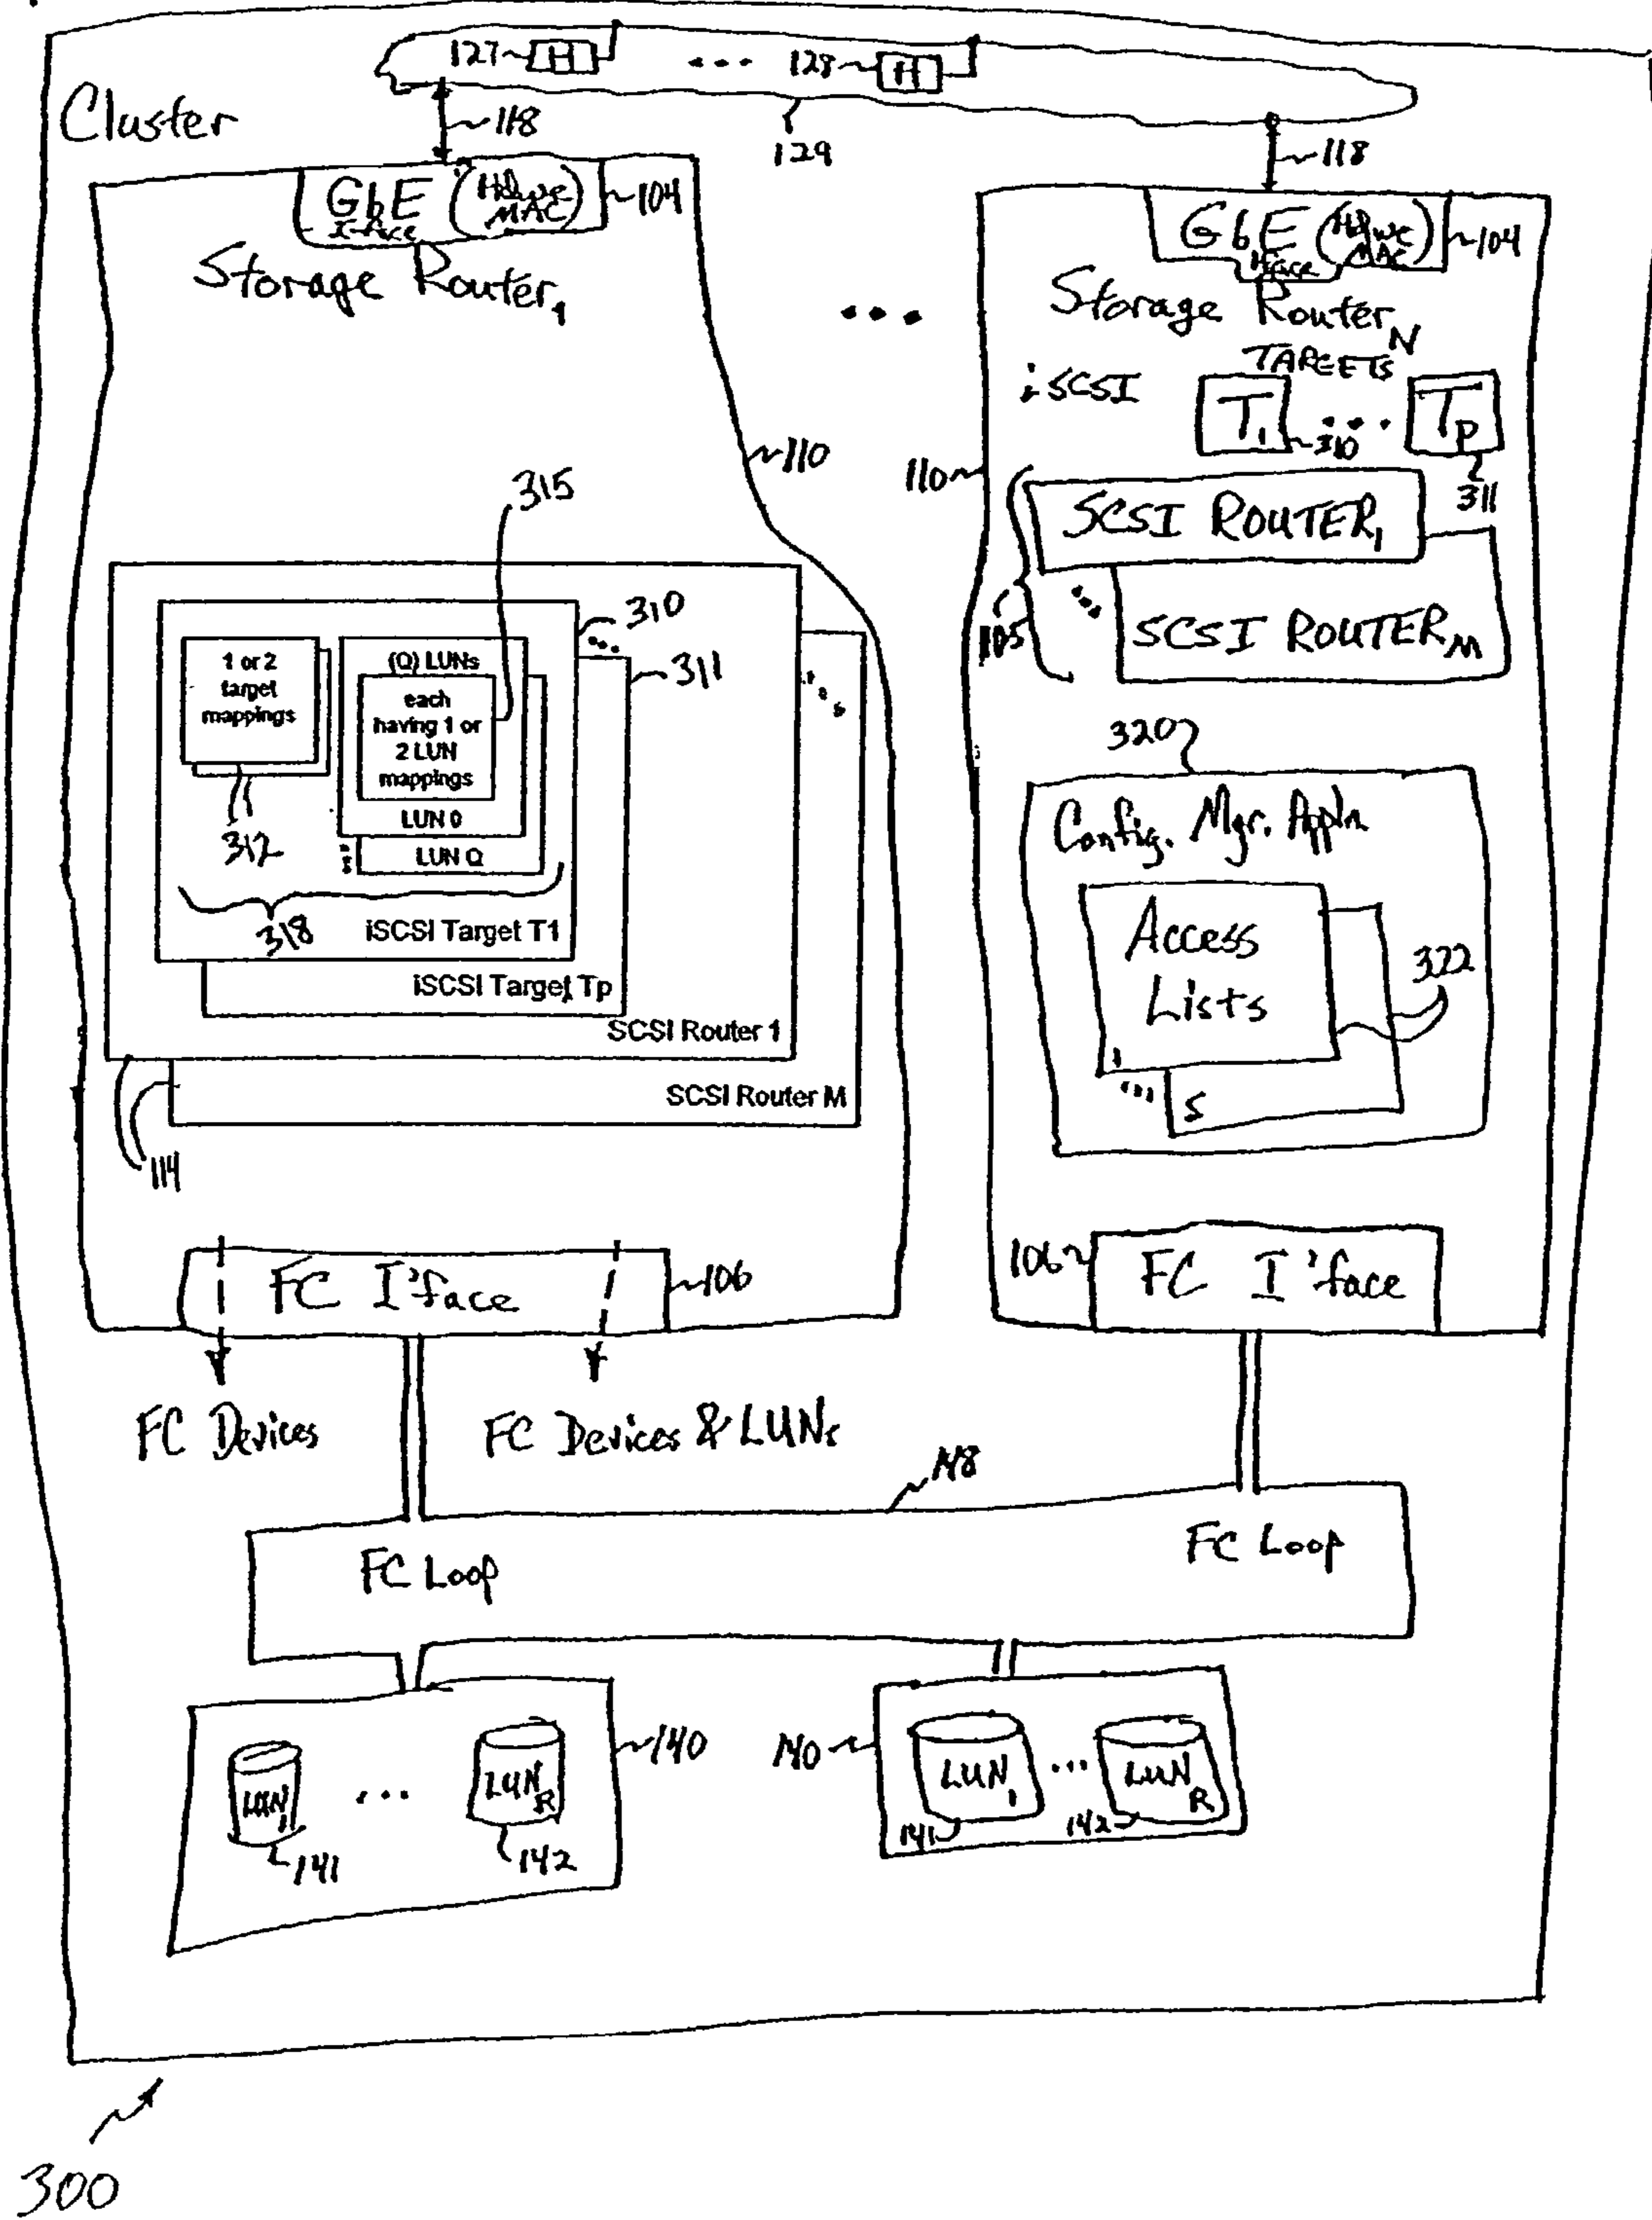 127 H ... 128 H
Cluster
118
129
118
GbE (Hdwe
I-face MAC)
104
Storage Router1
...
GbE (Hdwe
I'face MAC)
104
Storage RouterN
iSCSI TARGETS
T1 ... Tp
310
311
110
110
315
SCSI ROUTER1
...
SCSI ROUTERM
105
310
...
311
...
1 or 2
target
mappings
(Q) LUNs
each
having 1 or
2 LUN
mappings
LUN 0
...
LUN Q
312
318
iSCSI Target T1
iSCSI Target Tp
SCSI Router 1
SCSI Router M
114
320
Config. Mgr. Appln
Access
Lists
1
...
S
322
FC I'face
106
106
FC I'face
FC Devices
FC Devices & LUNs
148
FC Loop
FC Loop
LUN1 ... LUNR
141
142
140
140
LUN1 ... LUNR
141
142
300